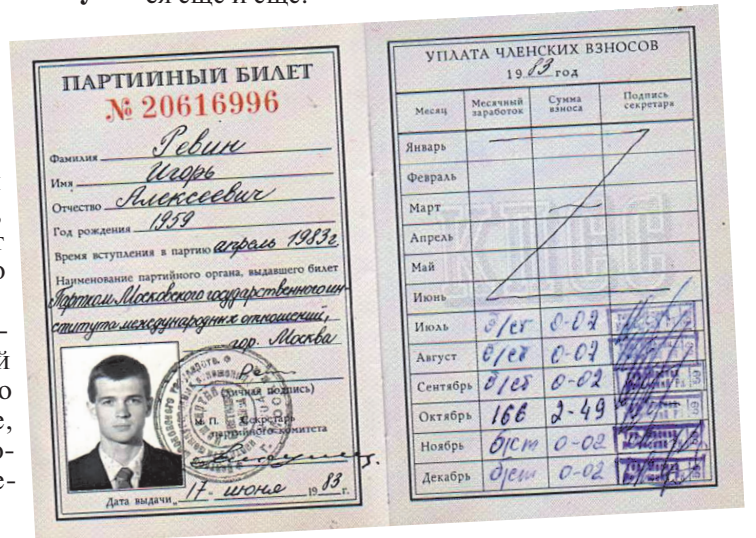 ся еще и еще.
ПАРТИЙНЫЙ БИЛЕТ
№ 20616996
Фамилия Ревин
Имя Игорь
Отчество Алексеевич
Год рождения 1959
Время вступления в партию апрель 1983г
Наименование партийного органа, выдавшего билет
Партком Московского государственного ин-
ститута международных отношений,
гор. Москва
(личная подпись)
М. П. Секретарь
партийного комитета
Дата выдачи „17“ июня 1983 г.
УПЛАТА ЧЛЕНСКИХ ВЗНОСОВ
1983 год
Месяц Месячный заработок Сумма взноса Подпись секретаря
Январь
Февраль
Март
Апрель
Май
Июнь
Июль б/ст 0-02
Август б/ст 0-02
Сентябрь б/ст 0-02
Октябрь 166 2-49
Ноябрь б/ст 0-02
Декабрь б/ст 0-02
КПСС